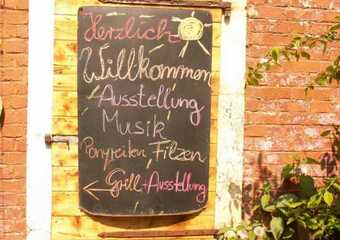 Herzlich
Willkommen
Ausstellung
Musik
Ponyreiten, Filzen
Grill + Ausstellung